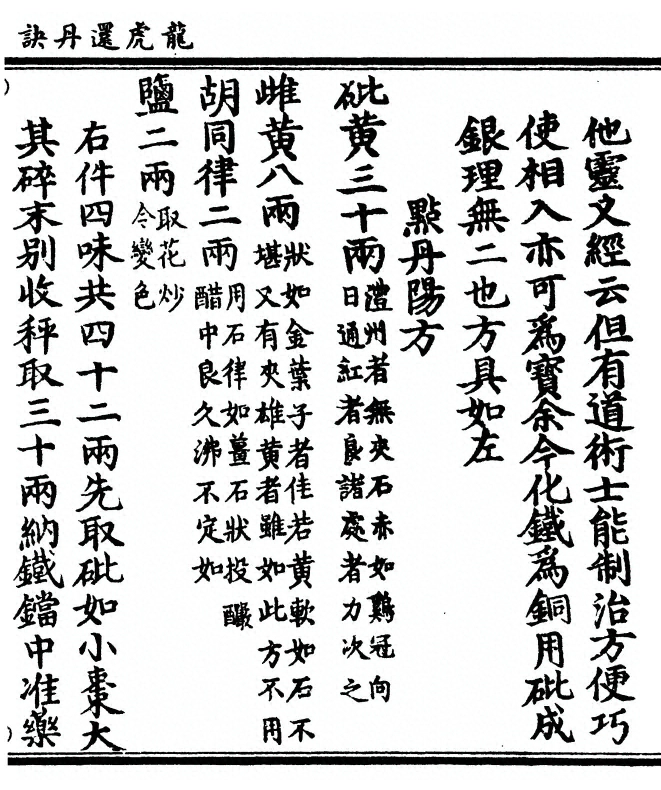 龍虎還丹訣
他靈文經云但有道術士能制治方便巧
使相入亦可爲寶余今化鐵爲銅用砒成
銀理無二也方具如左
點丹陽方
砒黃三十兩澧州者無夾石赤如鷄冠向
日通紅者良諸處者力次之
雌黃八兩狀如金葉子者佳若黃軟如石不
堪又有夾雄黃者雖如此方不用
胡同律二兩用石律如薑石狀投釅
醋中良久沸不定如
鹽二兩取花炒
令變色
右件四味共四十二兩先取砒如小棗大
其碎末別收秤取三十兩納鐵鐺中准藥